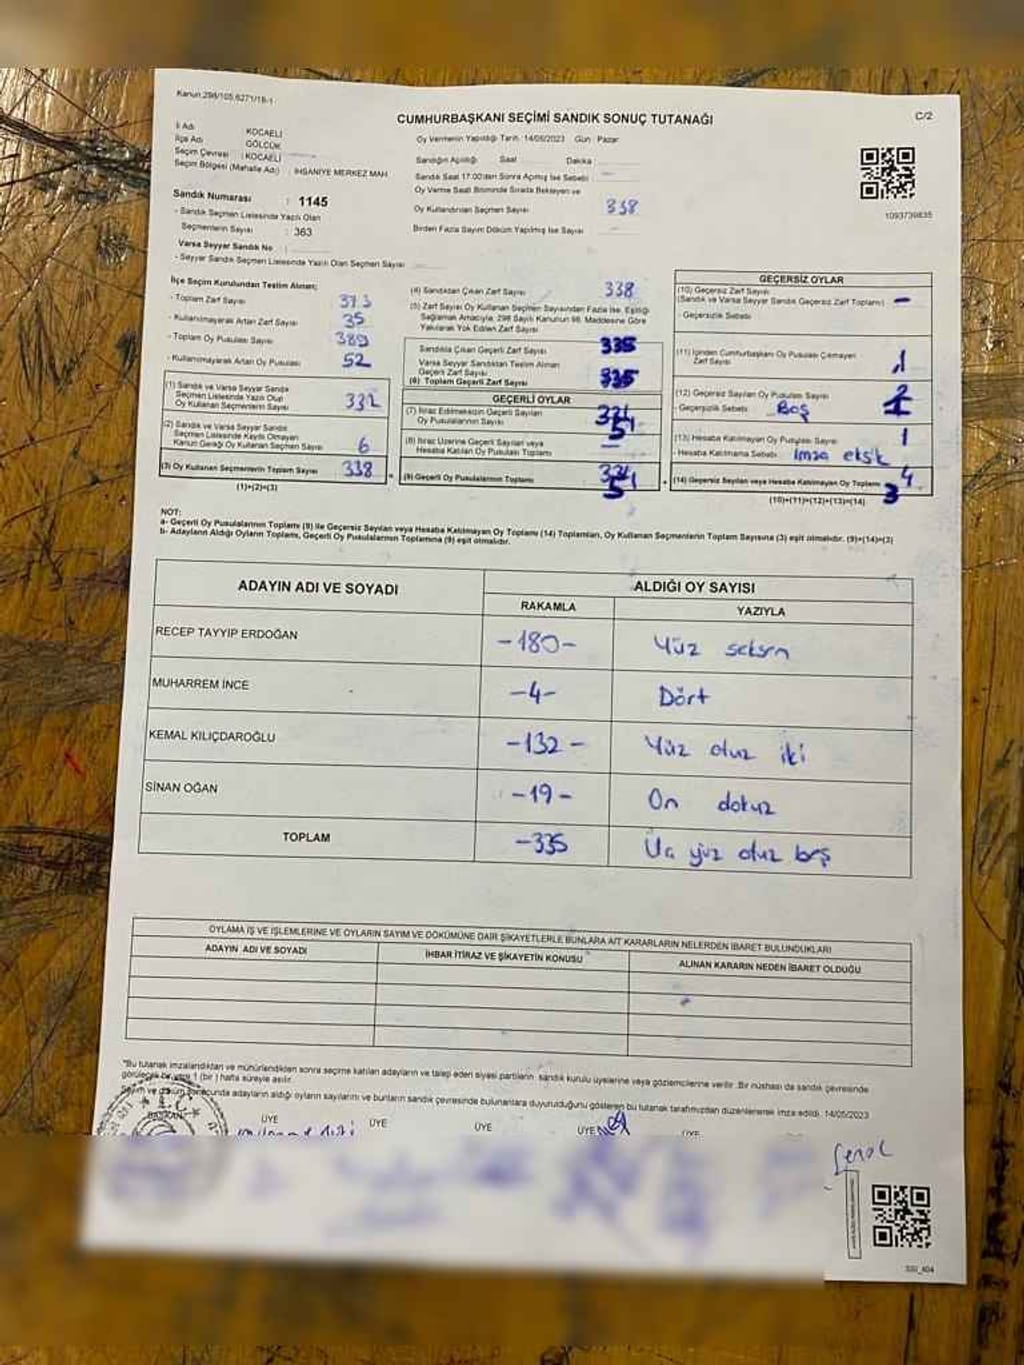 Kanun:298/105,6271/18-1
CUMHURBAŞKANI SEÇİMİ SANDIK SONUÇ TUTANAĞI
C/2
İl Adı : KOCAELİ
İlçe Adı : GÖLCÜK
Seçim Çevresi : KOCAELİ
Seçim Bölgesi (Mahalle Adı) : İHSANİYE MERKEZ MAH
Sandık Numarası : 1145
- Sandık Seçmen Listesinde Yazılı Olan
Seçmenlerin Sayısı : 363
Varsa Seyyar Sandık No :
- Seyyar Sandık Seçmen Listesinde Yazılı Olan Seçmen Sayısı :
Oy Vermenin Yapıldığı Tarih: 14/05/2023 Gün : Pazar
Sandığın Açıldığı Saat Dakika
Sandık Saat 17:00'den Sonra Açılmış İse Sebebi
Oy Verme Saati Bitiminde Sırada Bekleyen ve
Oy Kullandırılan Seçmen Sayısı 338
Birden Fazla Sayım Döküm Yapılmış İse Sayısı
1093739835
İlçe Seçim Kurulundan Teslim Alınan;
- Toplam Zarf Sayısı 373
- Kullanılmayarak Artan Zarf Sayısı 35
- Toplam Oy Pusulası Sayısı 389
- Kullanılmayarak Artan Oy Pusulası 52
(1) Sandık ve Varsa Seyyar Sandık
Seçmen Listesinde Yazılı Olan
Oy Kullanan Seçmenlerin Sayısı 332
(2) Sandık ve Varsa Seyyar Sandık
Seçmen Listesinde Kayıtlı Olmayan
Kanun Gereği Oy Kullanan Seçmen Sayısı 6
(3) Oy Kullanan Seçmenlerin Toplam Sayısı 338
(1)+(2)=(3)
(4) Sandıktan Çıkan Zarf Sayısı 338
(5) Zarf Sayısı Oy Kullanan Seçmen Sayısından Fazla İse, Eşitliği
Sağlamak Amacıyla, 298 Sayılı Kanunun 98. Maddesine Göre
Yakılarak Yok Edilen Zarf Sayısı
Sandıkta Çıkan Geçerli Zarf Sayısı 335
Varsa Seyyar Sandıktan Teslim Alınan
Geçerli Zarf Sayısı
(6) Toplam Geçerli Zarf Sayısı 335
GEÇERLİ OYLAR
(7) İtiraz Edilmeksizin Geçerli Sayılan
Oy Pusulalarının Sayısı
(8) İtiraz Üzerine Geçerli Sayılan veya
Hesaba Katılan Oy Pusulası Toplamı
(9) Geçerli Oy Pusulalarının Toplamı
GEÇERSİZ OYLAR
(10) Geçersiz Zarf Sayısı
(Sandık ve Varsa Seyyar Sandık Geçersiz Zarf Toplamı) -
- Geçersizlik Sebebi
(11) İçinden Cumhurbaşkanı Oy Pusulası Çıkmayan
Zarf Sayısı 1
(12) Geçersiz Sayılan Oy Pusulası Sayısı
- Geçersizlik Sebebi Boş
(13) Hesaba Katılmayan Oy Pusulası Sayısı 1
- Hesaba Katılmama Sebebi İmza eksik
(14) Geçersiz Sayılan veya Hesaba Katılmayan Oy Toplamı 4 3
(10)+(11)+(12)+(13)=(14)
NOT:
a- Geçerli Oy Pusulalarının Toplamı (9) ile Geçersiz Sayılan veya Hesaba Katılmayan Oy Toplamı (14) Toplamları, Oy Kullanan Seçmenlerin Toplam Sayısına (3) eşit olmalıdır. (9)+(14)=(3)
b- Adayların Aldığı Oyların Toplamı, Geçerli Oy Pusulalarının Toplamına (9) eşit olmalıdır.
ADAYIN ADI VE SOYADI
ALDIĞI OY SAYISI
RAKAMLA YAZIYLA
RECEP TAYYİP ERDOĞAN -180- Yüz seksen
MUHARREM İNCE -4- Dört
KEMAL KILIÇDAROĞLU -132- Yüz otuz iki
SİNAN OĞAN -19- On dokuz
TOPLAM -335 Üç yüz otuz beş
OYLAMA İŞ VE İŞLEMLERİNE VE OYLARIN SAYIM VE DÖKÜMÜNE DAİR ŞİKAYETLERLE BUNLARA AİT KARARLARIN NELERDEN İBARET BULUNDUKLARI
ADAYIN ADI VE SOYADI İHBAR İTİRAZ VE ŞİKAYETİN KONUSU ALINAN KARARIN NEDEN İBARET OLDUĞU
*Bu tutanak imzalandıktan ve mühürlendikten sonra seçime katılan adayların ve talep eden siyasi partilerin sandık kurulu üyelerine veya gözlemcilerine verilir. Bir nüshası da sandık çevresinde
görülecek bir yere 1 (bir) hafta süreyle asılır.
Sayım ve döküm sonucunda adayların aldığı oyların sayılarını ve bunların sandık çevresinde bulunanlara duyurulduğunu gösteren bu tutanak tarafımızdan düzenlenerek imza edildi. 14/05/2023
BAŞKAN ÜYE ÜYE ÜYE ÜYE ÜYE
Şenol